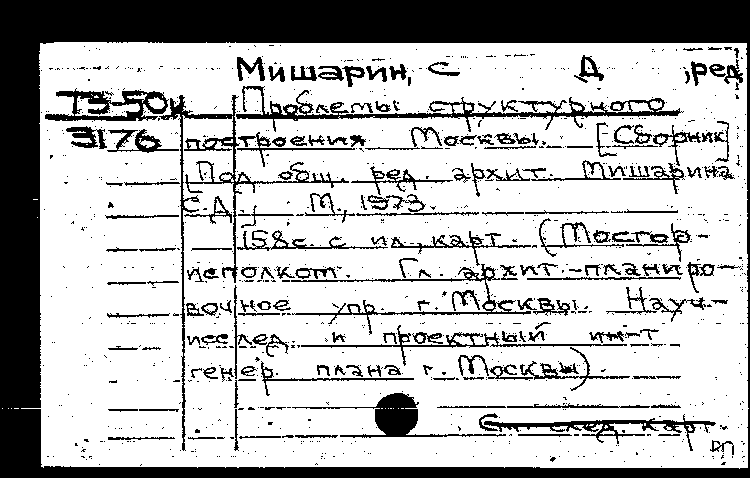 Мишарин, С Д , ред
Т3-50к Проблемы структурного
3176 построения Москвы. [Сборник]
[Под общ. ред. архит. Мишарина
С.Д.] М., 1973.
158с. с ил., карт. (Мосгор-
исполком. Гл. архит.-планиро-
вочное упр. г. Москвы. Науч.-
исслед. и проектный ин-т
генер. плана г. Москвы).
См. след. карт.